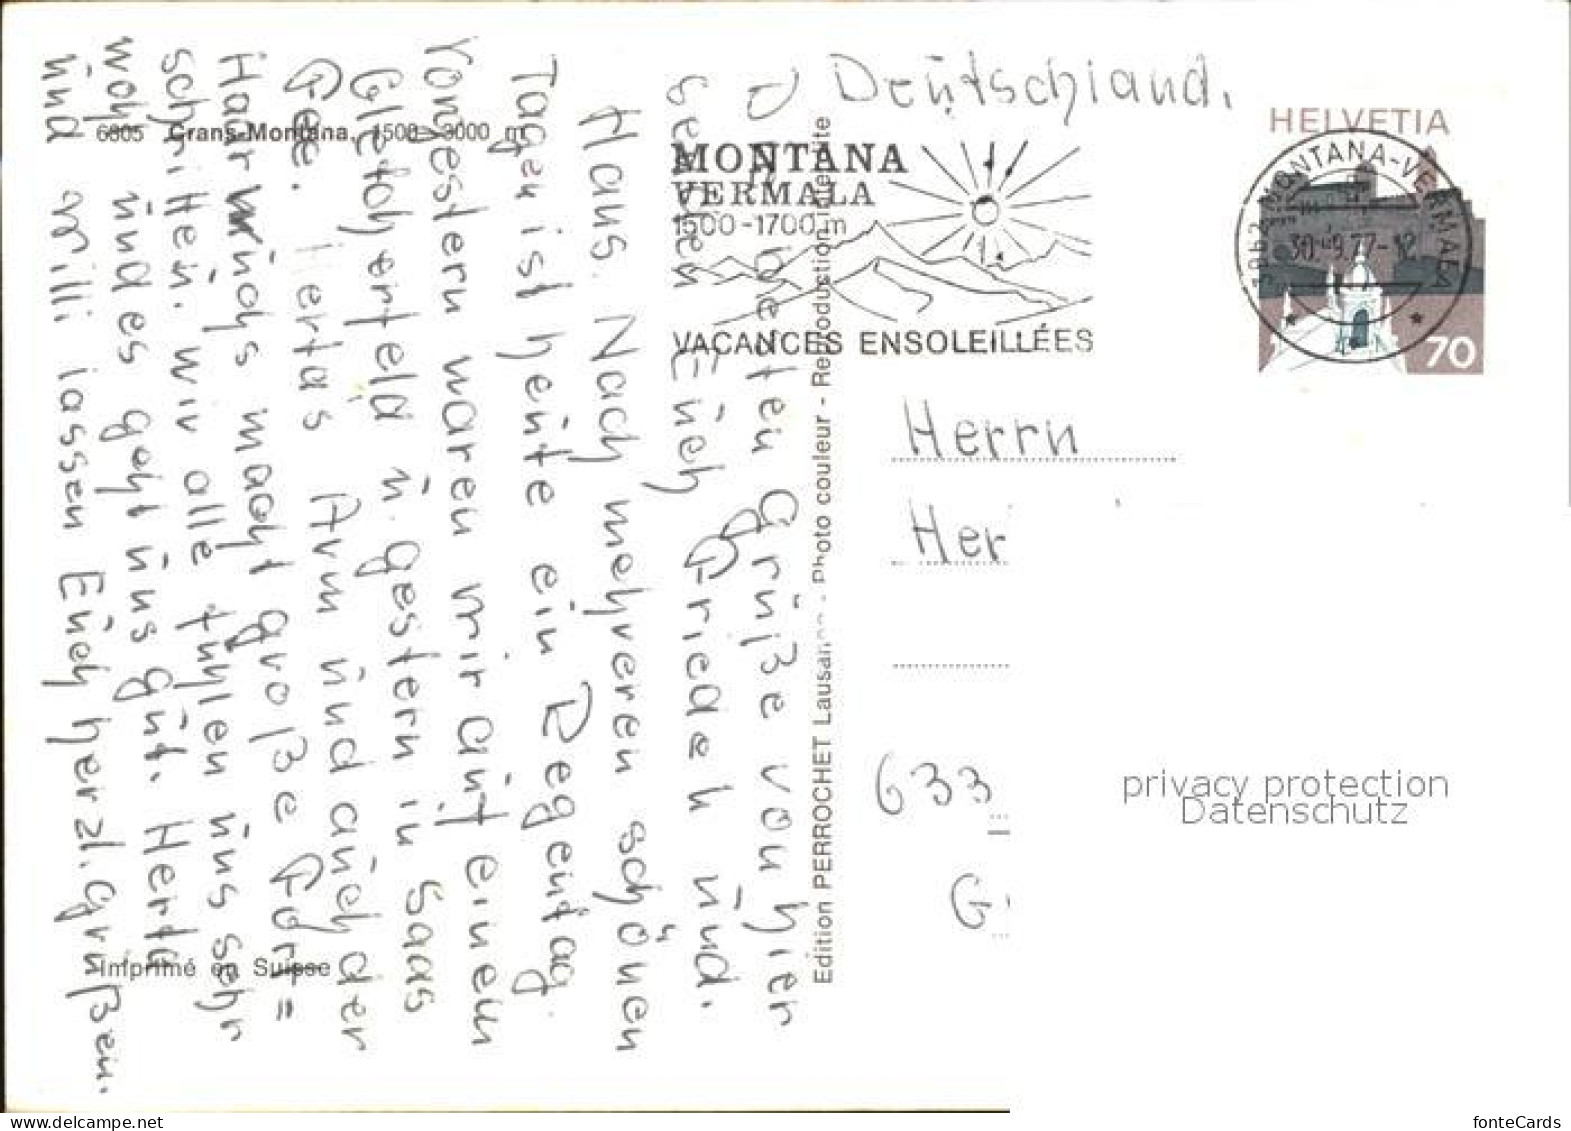 Deutschland.
HELVETIA
MONTANA
VERMALA
1500-1700 m
VACANCES ENSOLEILLÉES
3962 MONTANA-VERMALA
30.-9.77-12
70
6805 Crans-Montana, 1500-3000 m
Imprimé en Suisse
Edition PERROCHET Lausanne - Photo couleur - Reproduction interdite
Herrn
Her
633
G
Die besten Grüße von hier
senden Euch Griedeh und
Haus. Nach mehreren schönen
Tagen ist heute ein Regentag.
Vorgestern waren wir auf einem
Gletscherfeld u. gestern in Saas
Fee. Hertas Arm und auch der
Haarwuchs macht große Fort=
schritten. wir alle fühlen uns sehr
wohl und es geht uns gut. Herta
und Willi lassen Euch herzl. grüßen.
privacy protection
Datenschutz
fonteCards